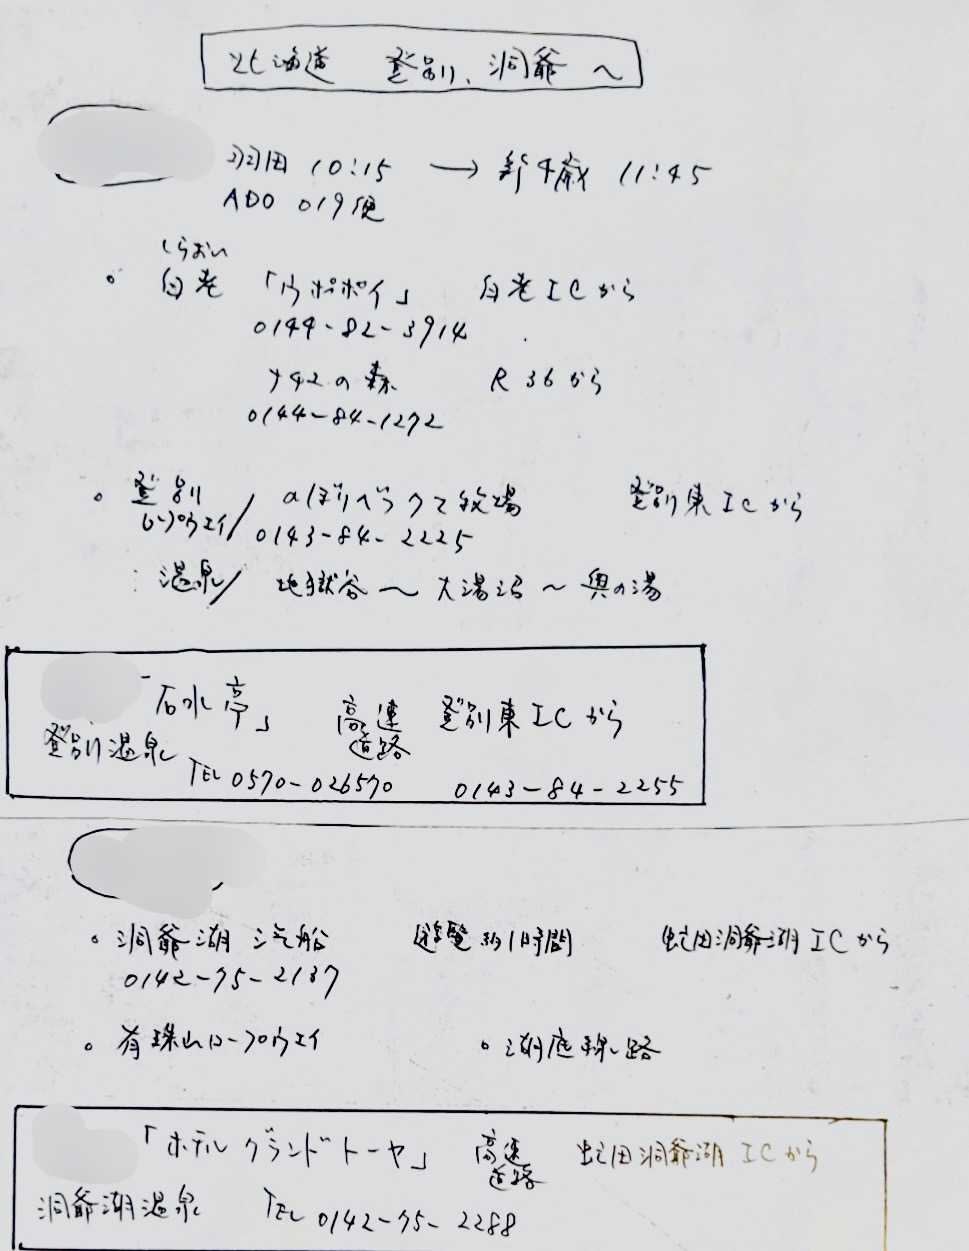 北海道 登別、洞爺へ
羽田 10:15 → 新千歳 11:45
ADO 019便
しらおい
白老 「ウポポイ」 白老ICから
0144-82-3914
の森 R36から
0144-84-1272
登別 / のぼりべつクマ牧場 登別東ICから
ロープウェイ / 0143-84-2225
温泉/ 地獄谷〜大湯沼〜奥の湯
「石水亭」 高速道路 登別東ICから
登別温泉
TEL 0570-026570 0143-84-2255
洞爺湖 汽船 遊覧約1時間 虻田洞爺湖ICから
0142-75-2137
有珠山ロープウェイ 湖底線路
「ホテルグランドトーヤ」 高速道路 虻田洞爺湖ICから
洞爺湖温泉 TEL 0142-75-2288